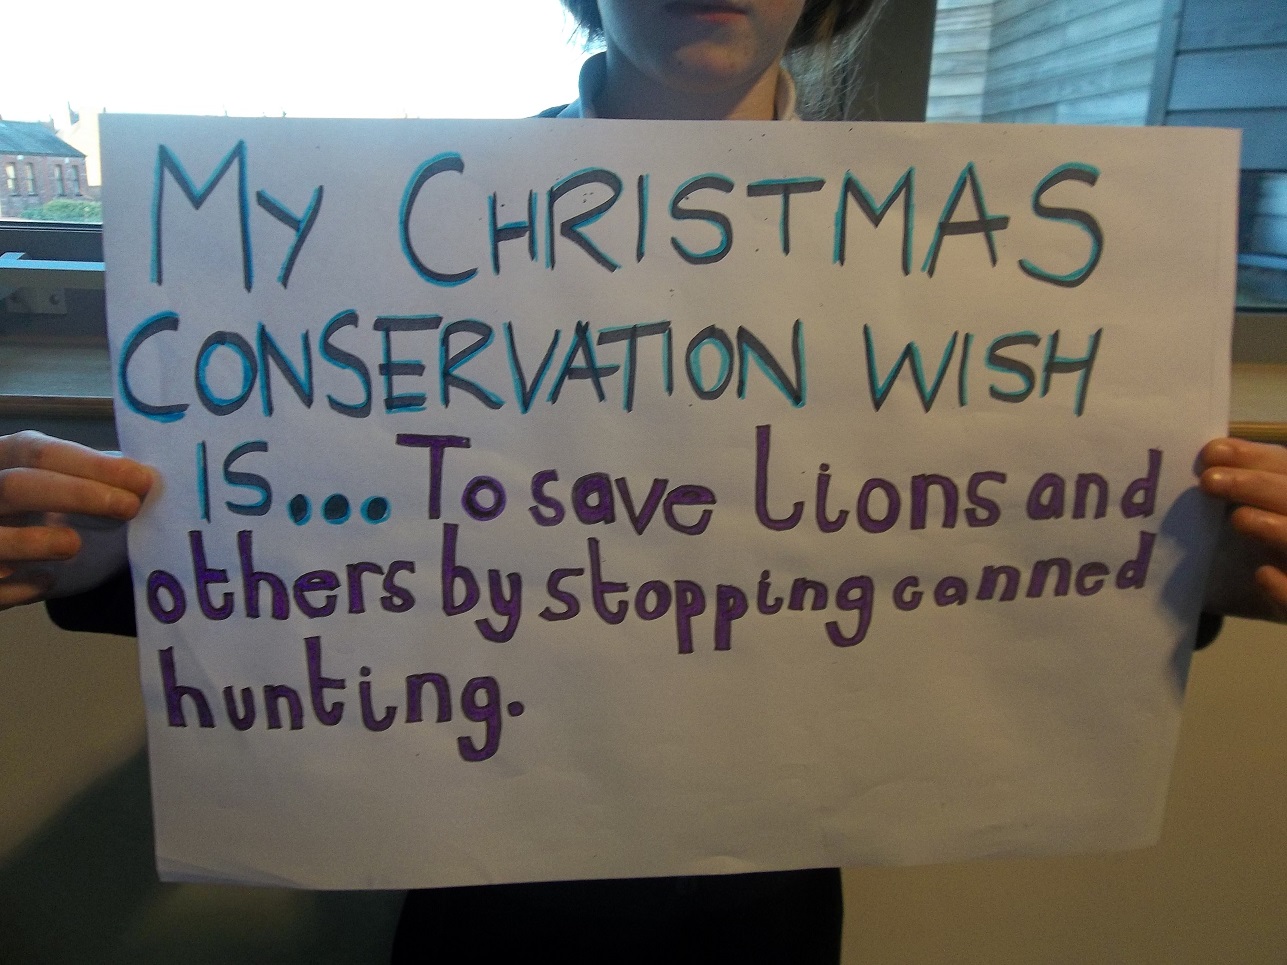 MY CHRISTMAS
CONSERVATION WISH
IS.... To save Lions and
others by stopping canned
hunting.